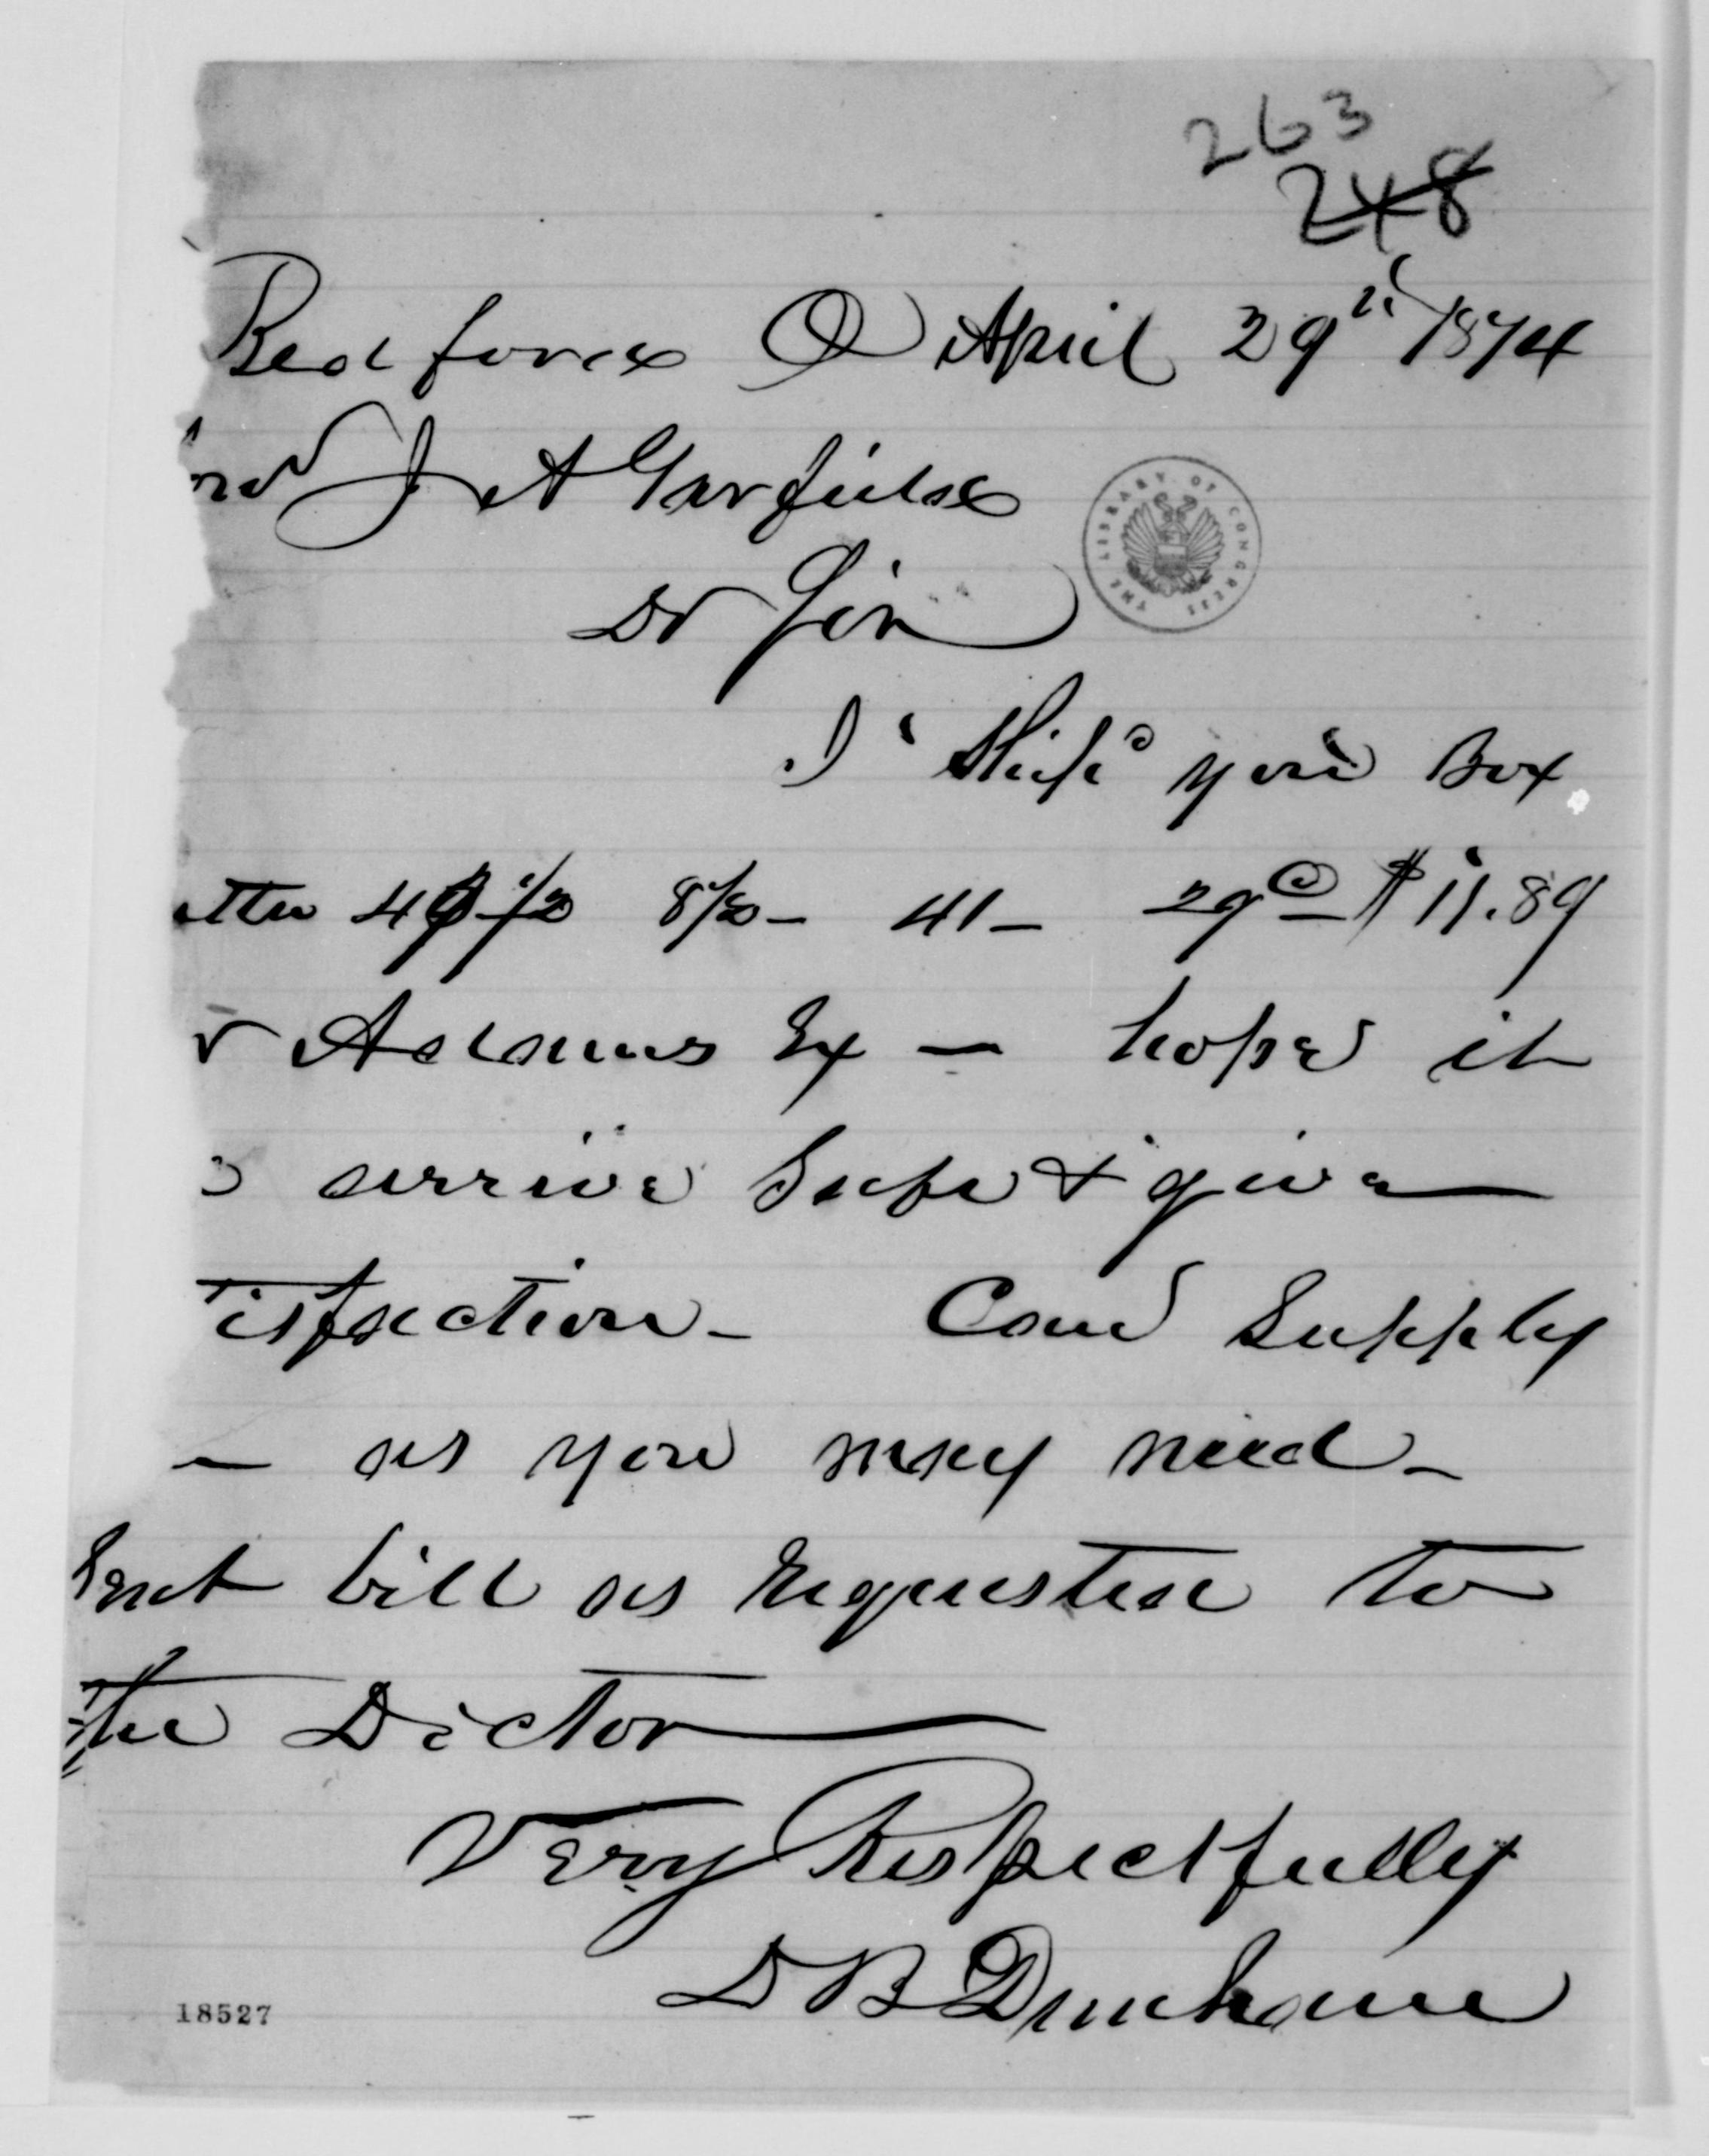 263
248
Bedford O April 29th/1874
on J A Garfield
Dr Sir
I Ship you Box
utter 49 1/2 8 1/2 - 41 - 29c $11.89
r Adams Ex - hope it
arrive Safe & give
tisfaction - Can Supply
- as you may need -
Sent bill as requested to
the Doctor
Very Respectfully
D B Dunham
THE LIBRARY OF CONGRESS
18527